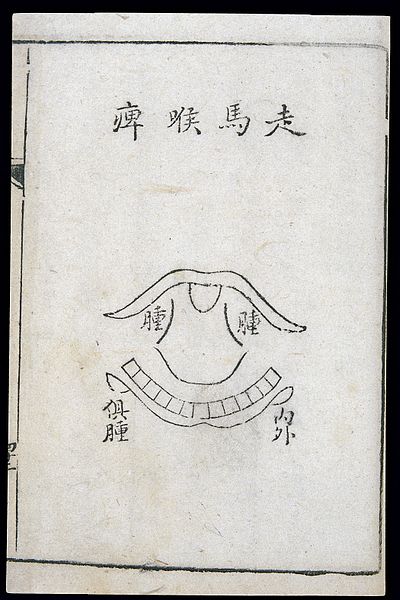 走馬喉痺
腫
腫
內外
俱腫